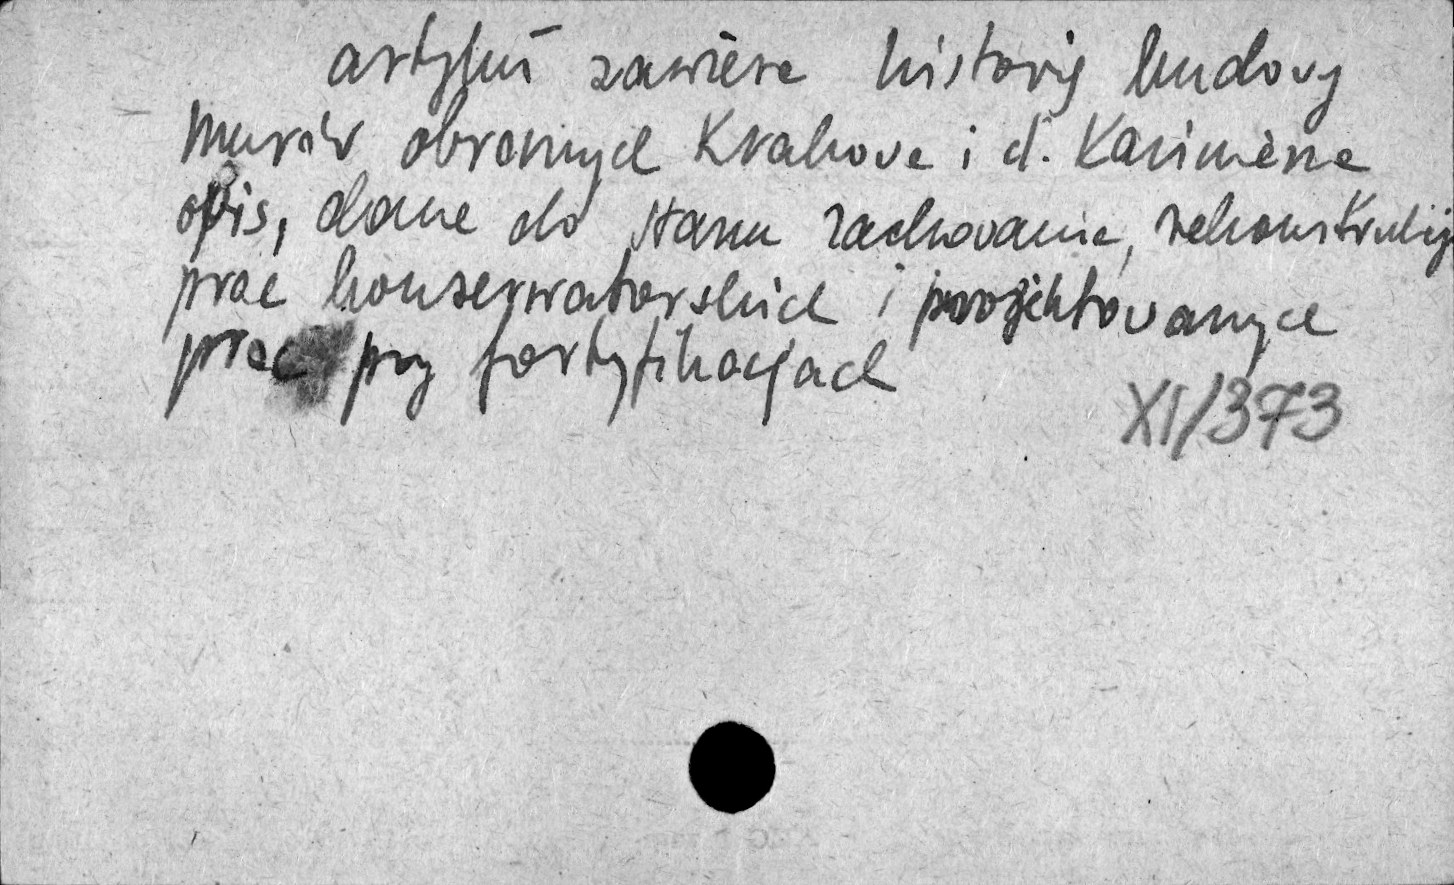 artykuł zawiera historię budowy
murów obronnych Krakowa i d. Kazimierza
opis, dane do stanu zachowania, rekonstrukcji
prac konserwatorskich i projektowanych
prac przy fortyfikacjach
XI/373